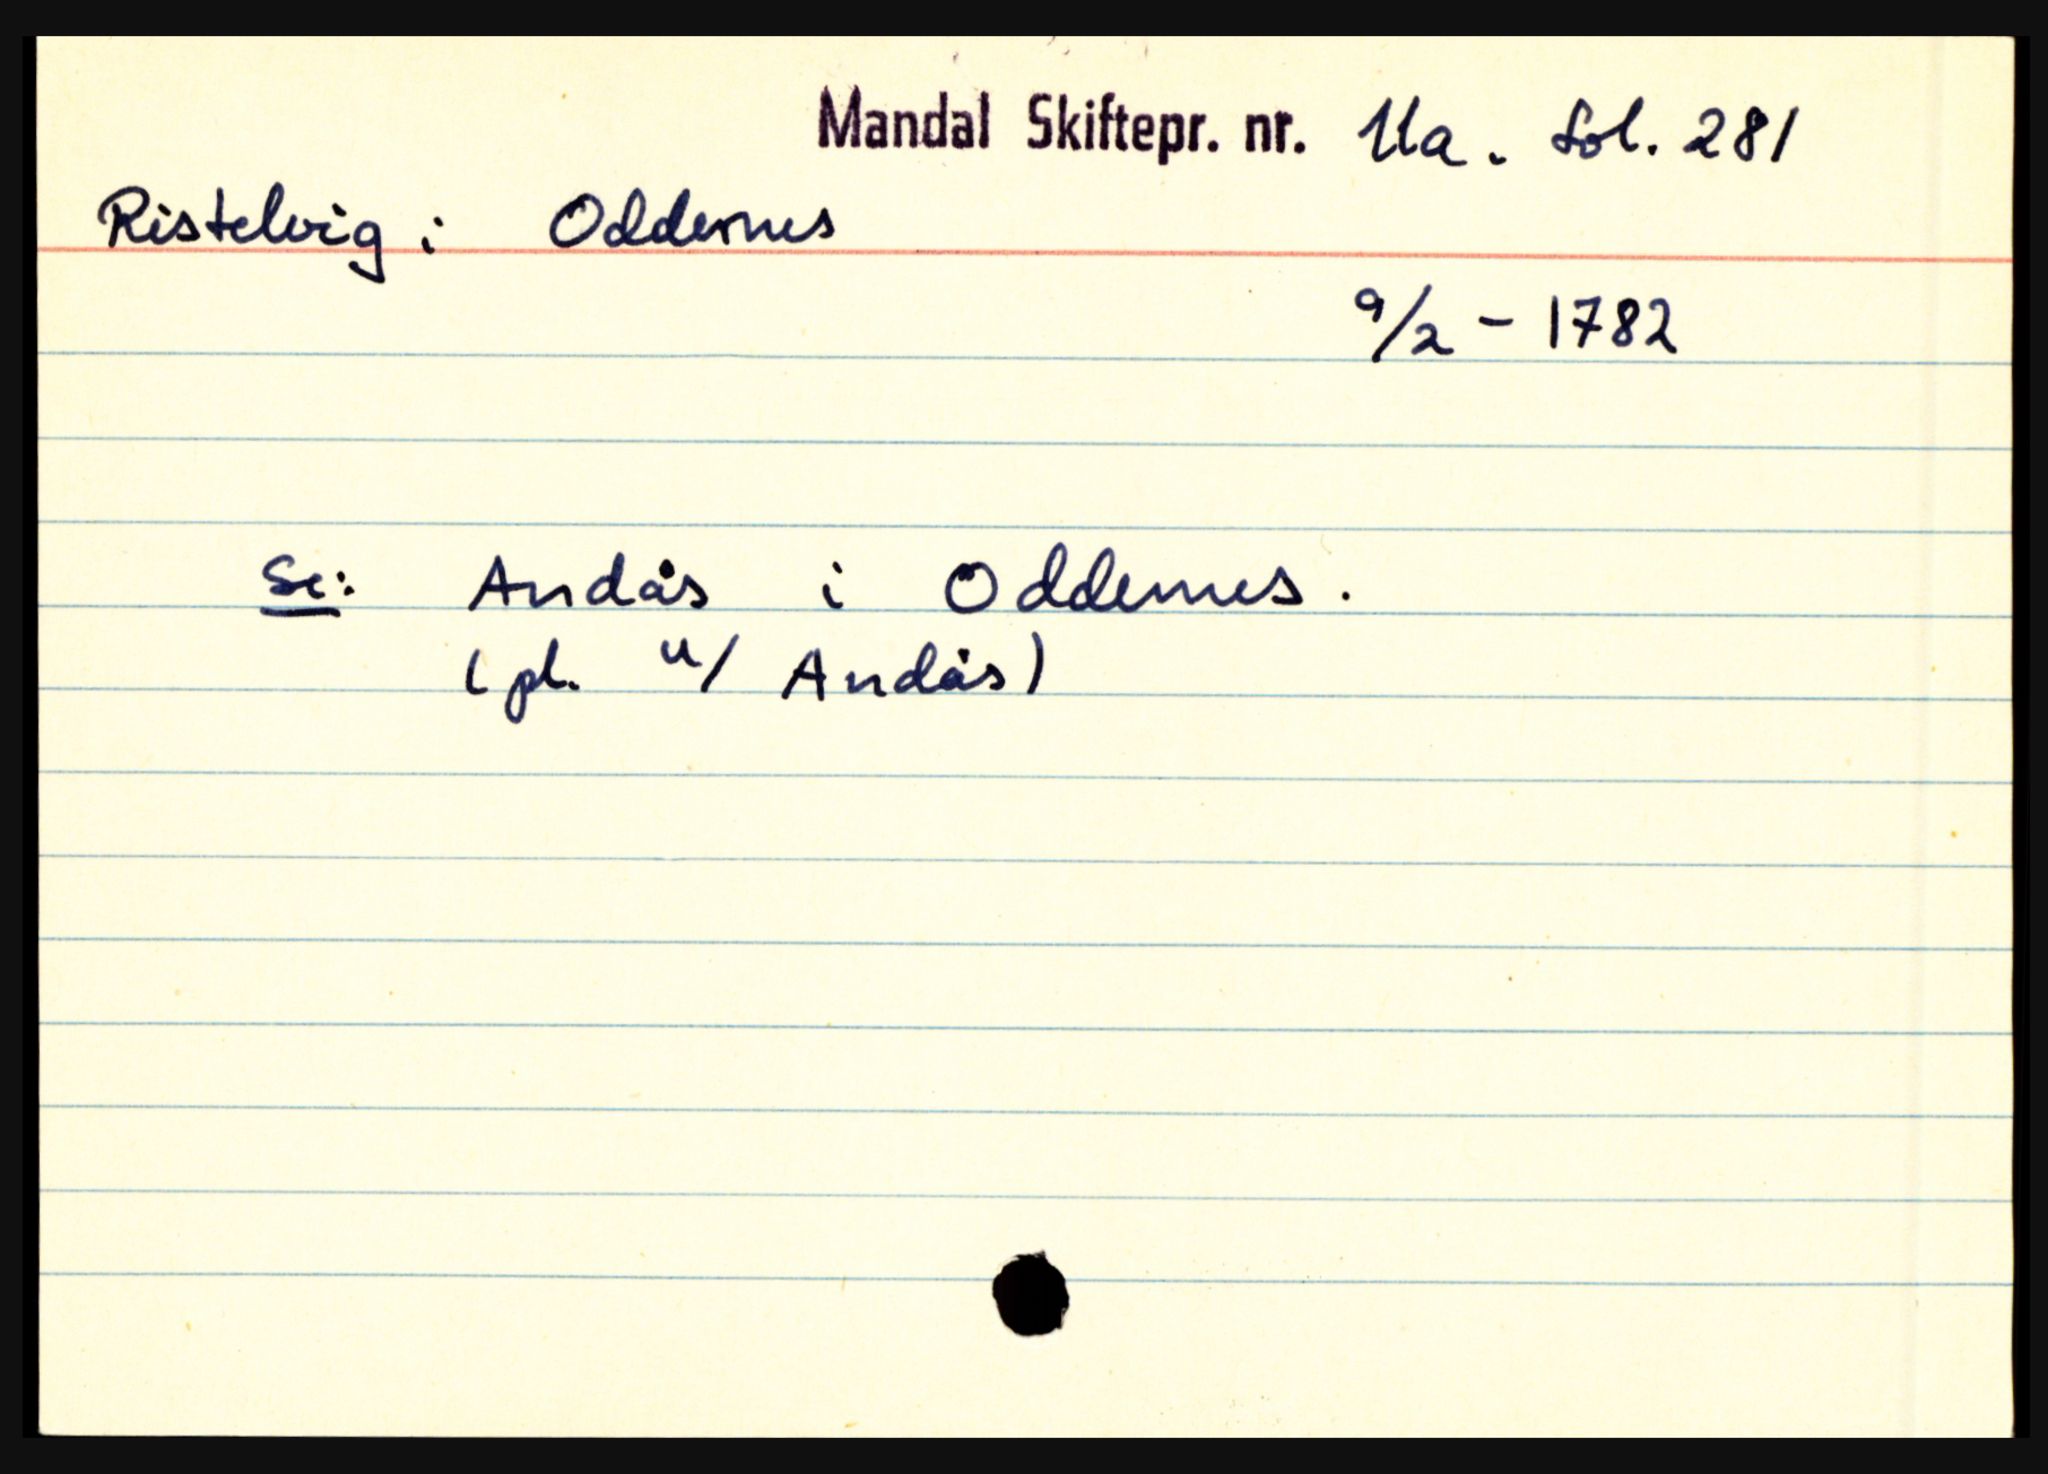 Mandal Skiftepr. nr. 11a. fol. 281
Ristelvig i Oddernes
9/2 - 1782
Se: Andås i Oddernes.
(pl. u/ Andås)